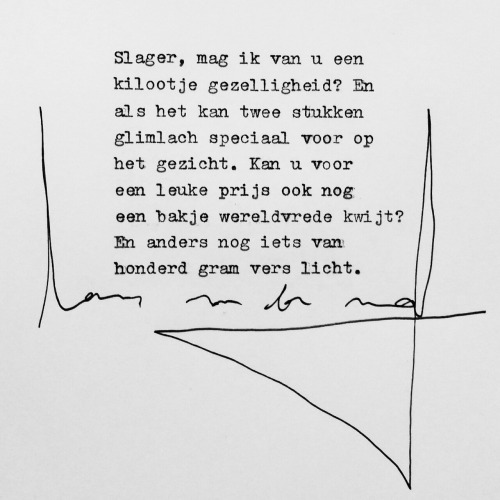 Slager, mag ik van u een
kilootje gezelligheid? En
als het kan twee stukken
glimlach speciaal voor op
het gezicht. Kan u voor
een leuke prijs ook nog
een bakje wereldvrede kwijt?
En anders nog iets van
honderd gram vers licht.